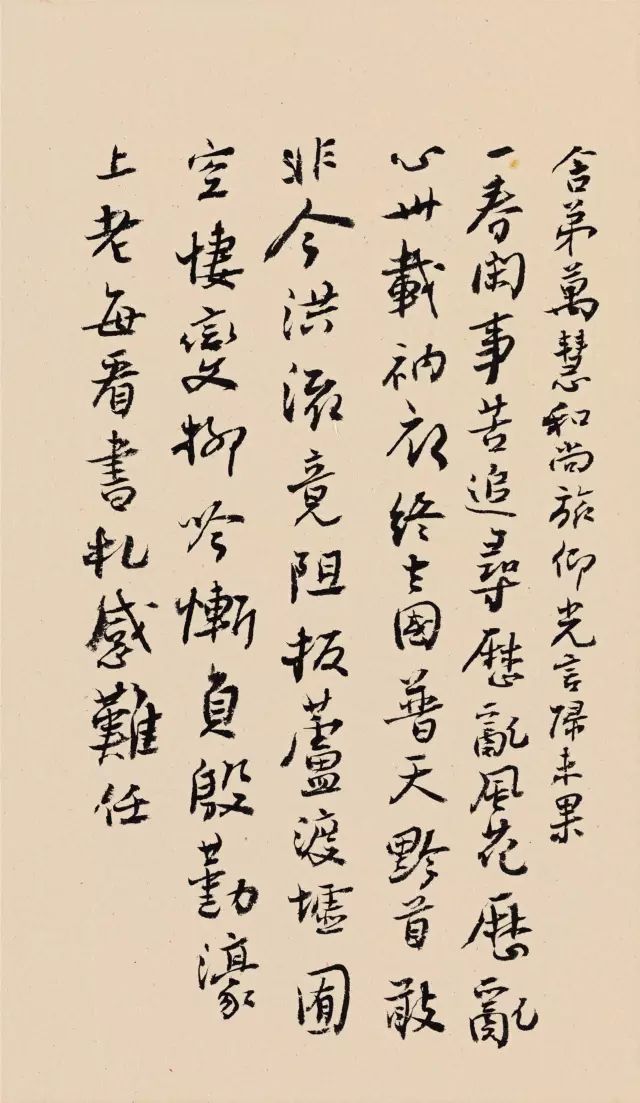 舍弟萬慧和尚旅仰光言歸未果
一春閑事苦追尋歷亂風花歷亂
心卅載衲衣終去國普天黔首敢
非今洪流竟阻折蘆渡墟囿
空悽變柳吟慚負殷勤濠
上老每看書札感難任